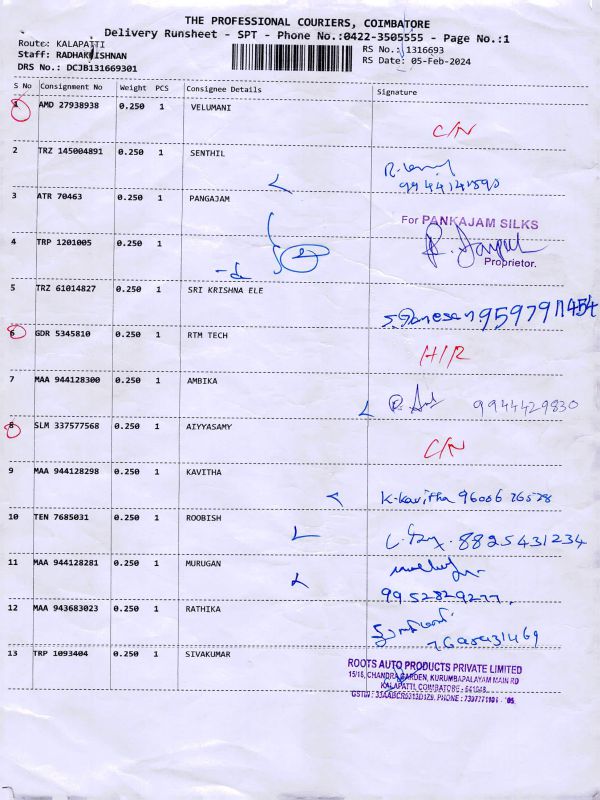 THE PROFESSIONAL COURIERS, COIMBATORE
Delivery Runsheet - SPT - Phone No.:0422-3505555 - Page No.:1
Route: KALAPATTI
Staff: RADHAKRISHNAN
DRS No.: DCJB131669301
RS No.: 1316693
RS Date: 05-Feb-2024
S No Consignment No Weight PCS Consignee Details Signature
1 AMD 27938938 0.250 1 VELUMANI
C/N
2 TRZ 145004891 0.250 1 SENTHIL
3 ATR 70463 0.250 1 PANGAJAM
For PANKAJAM SILKS
Proprietor.
4 TRP 1201005 0.250 1
5 TRZ 61014827 0.250 1 SRI KRISHNA ELE
S. Ganesan
6 GDR 5345810 0.250 1 RTM TECH
7 MAA 944128300 0.250 1 AMBIKA
9944429830
8 SLM 337577568 0.250 1 AIYYASAMY
C/N
9 MAA 944128298 0.250 1 KAVITHA
K-Kavitha 96006 26528
10 TEN 7685031 0.250 1 ROOBISH
8825431234
11 MAA 944128281 0.250 1 MURUGAN
9952829277
12 MAA 943683023 0.250 1 RATHIKA
13 TRP 1093404 0.250 1 SIVAKUMAR
ROOTS AUTO PRODUCTS PRIVATE LIMITED
15/16, CHANDRA GARDEN, KURUMBAPALAYAM MAIN RD
KALAPATTI, COIMBATORE -